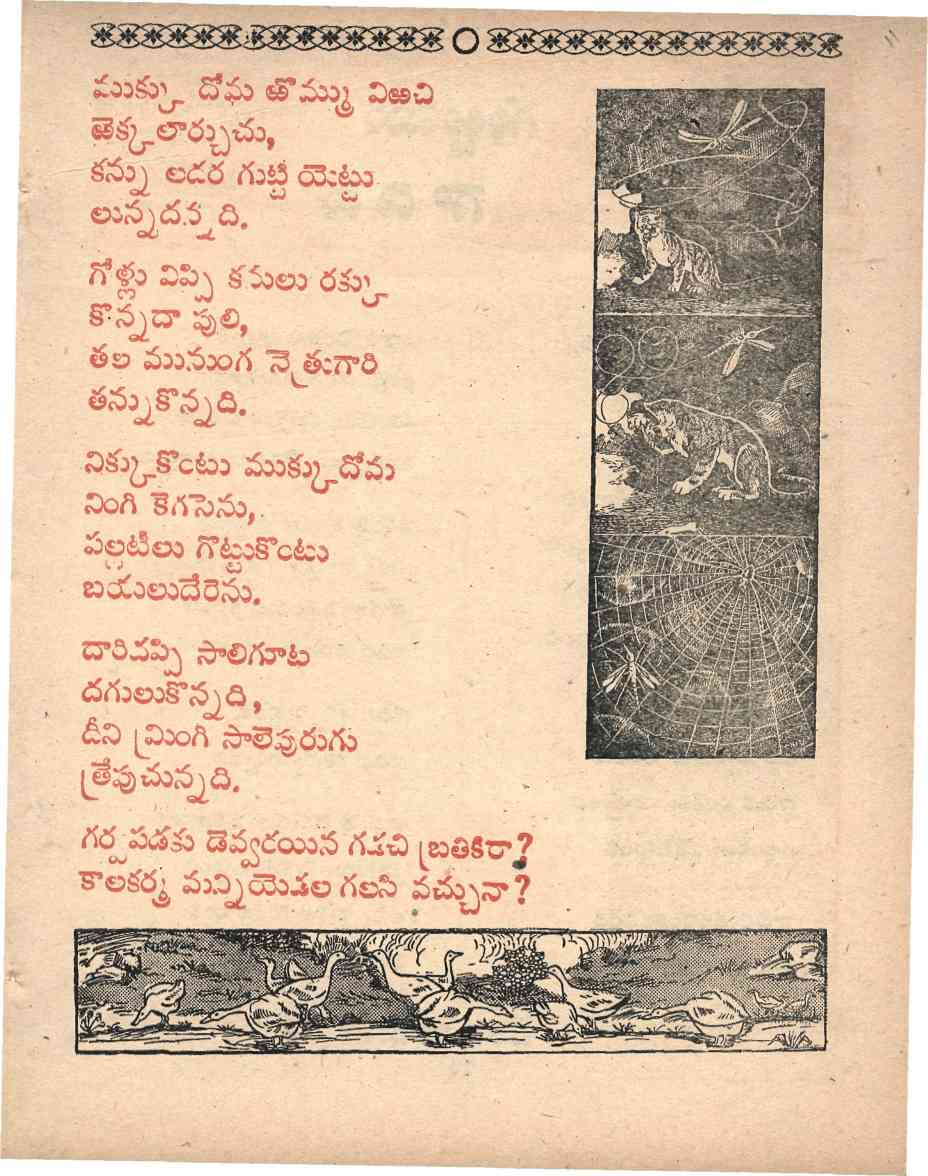 ముక్కు దోమ ఱొమ్ము విఱచి
ఱెక్కలార్చుచు,
కన్ను లదర గుట్టి యెట్టు
లున్నదన్నది.
గోళ్లు విప్పి కనులు రక్కు
కొన్నదా పులి,
తల మునుంగ నెత్రుగారి
తన్నుకొన్నది.
నిక్కుకొంటు ముక్కుదోమ
నింగి కెగసెను,
పల్లటీలు గొట్టుకొంటు
బయలుదేరెను.
దారిదప్పి సాలిగూట
దగులుకొన్నది,
దీని మ్రింగి సాలెపురుగు
త్రేపుచున్నది.
గర్వపడకు డెవ్వరయిన గడచి బ్రతికిరా?
కాలకర్మ మన్నియెడల గలసి వచ్చునా?